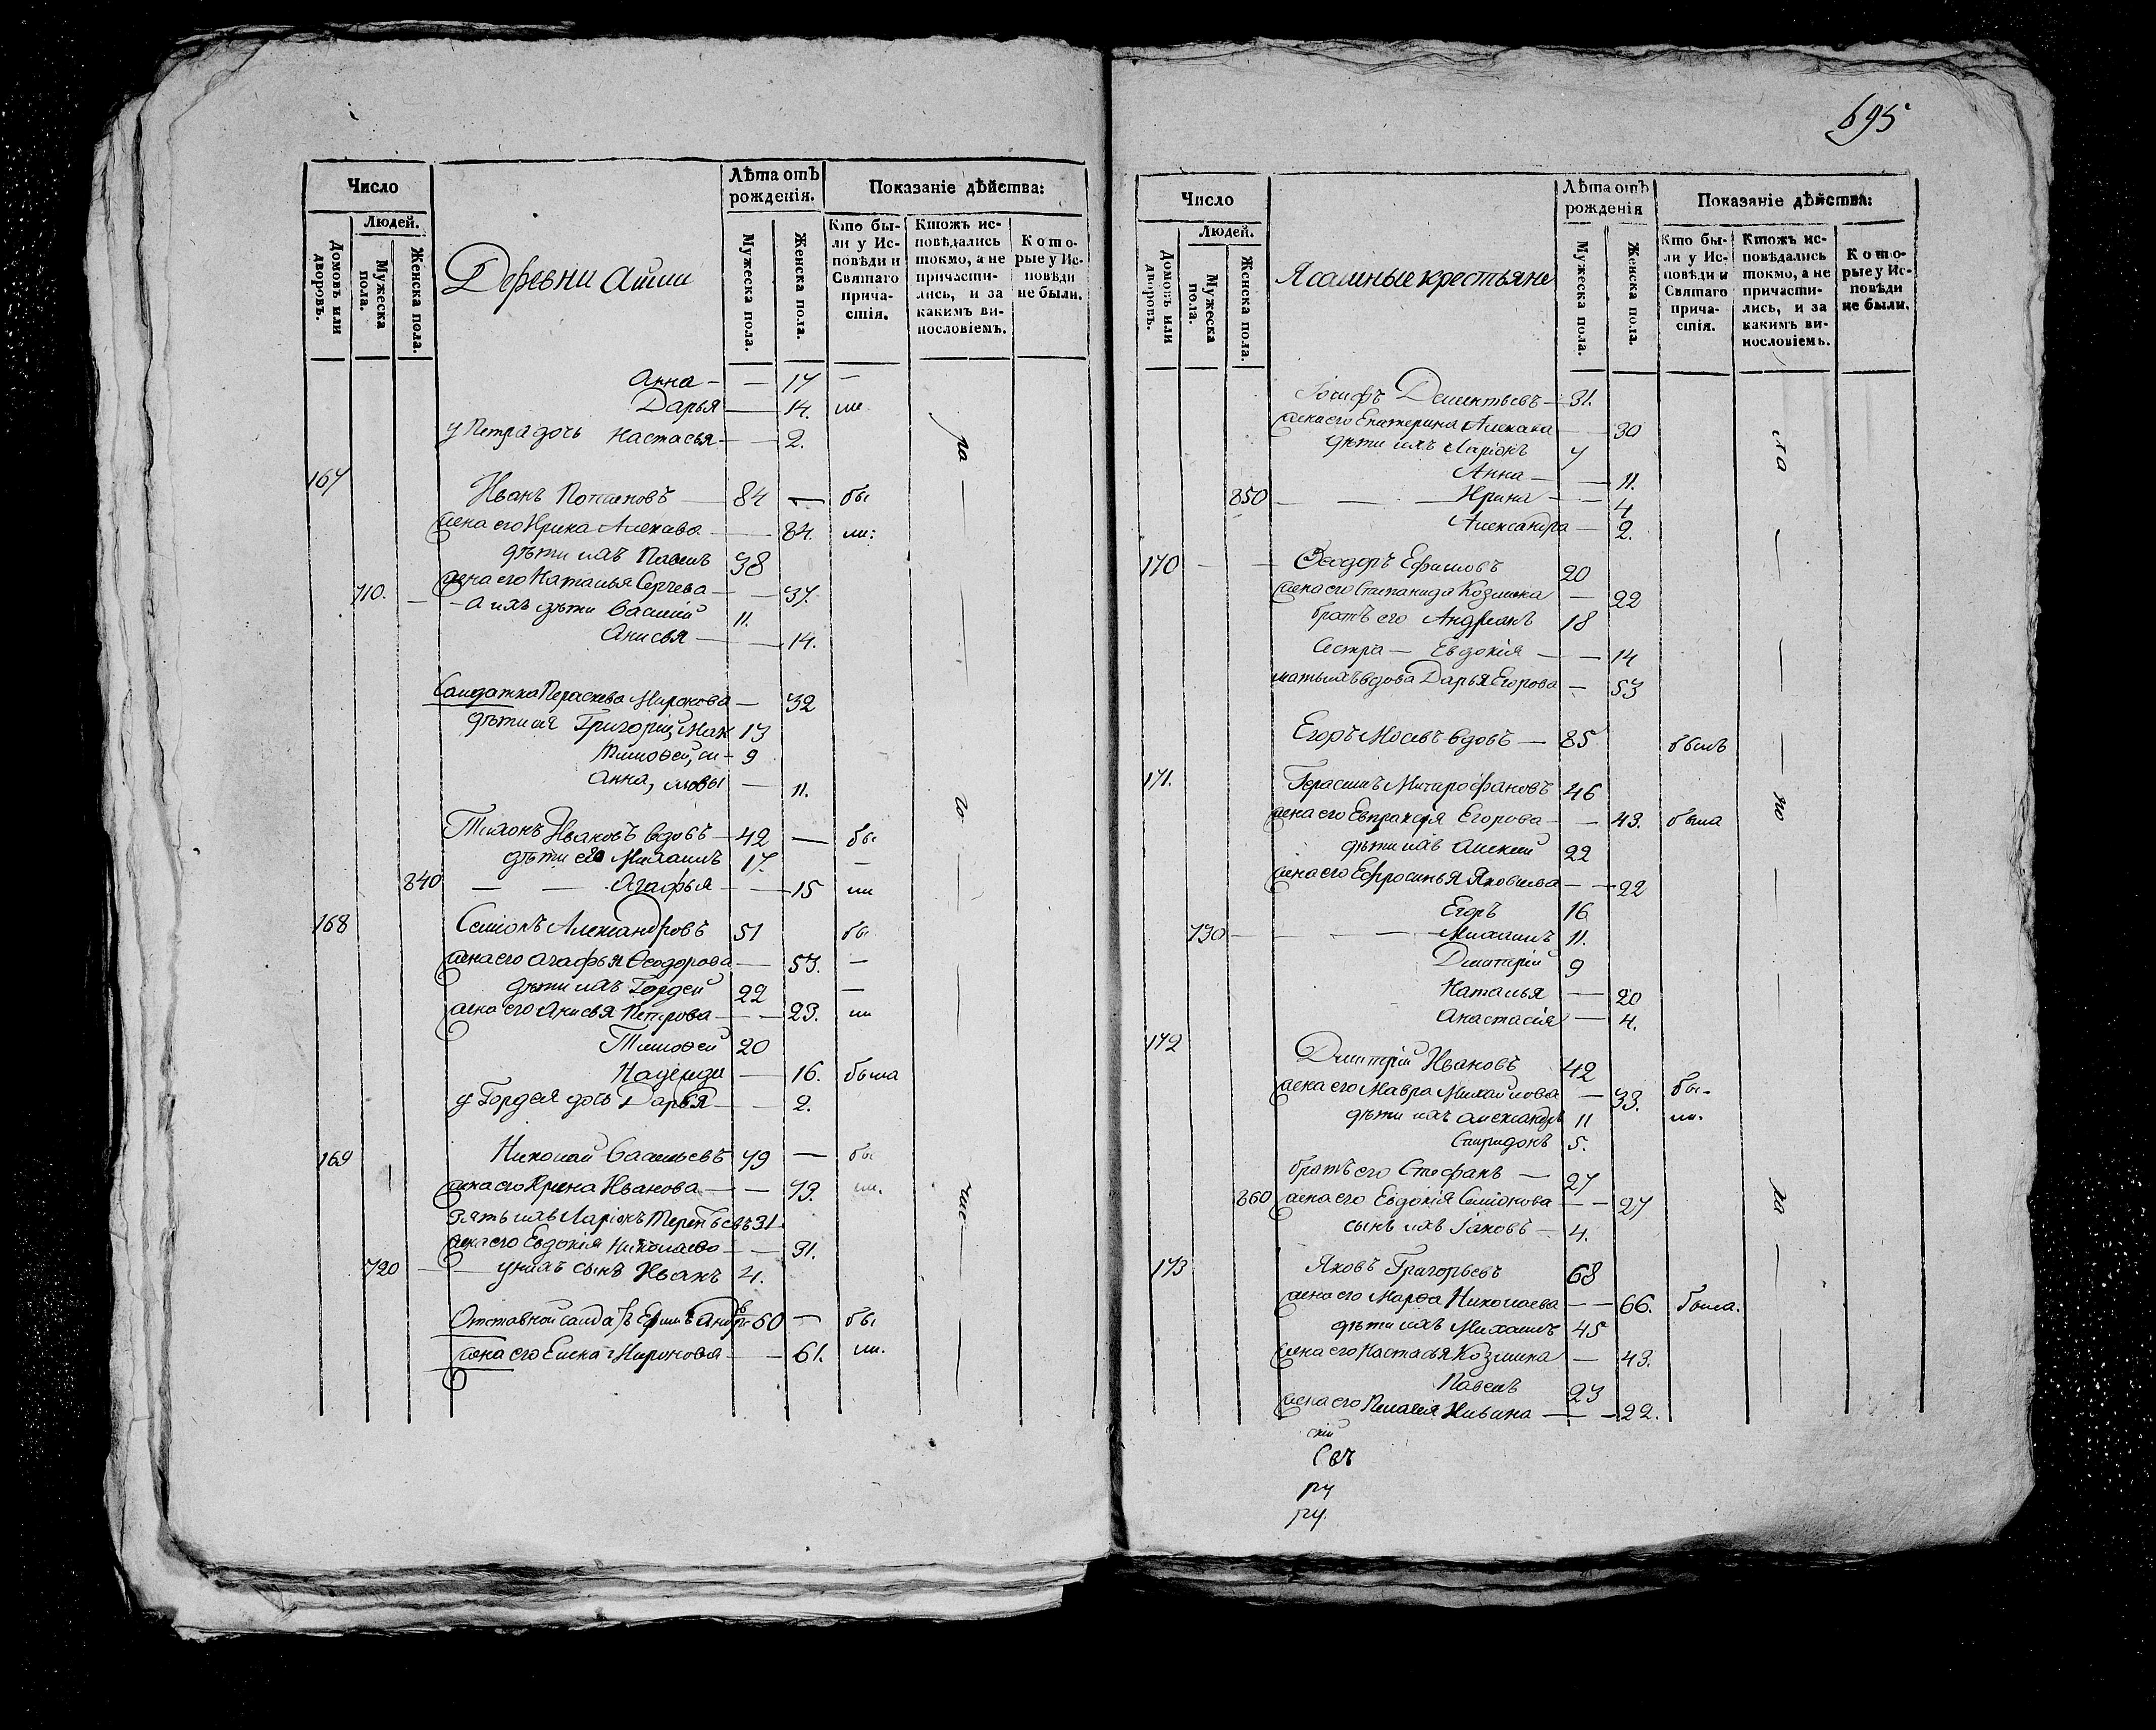 Число
Людей.
Домовъ или дворовъ.
Мужеска пола.
Женска пола.
Деревни Аши
Лѣта отъ рожденія.
Мужеска пола.
Женска пола.
Показаніе дѣйства:
Кто были у Исповѣди и Святаго причастія.
Ктожъ исповѣдались токмо, а не причастились, и за какимъ винословіемъ.
Которые у Исповѣди не были.
Анна — — 17 —
Дарья — 14. ли
у Петра дочь Настасья — — 2.
167
Иванъ Потаповъ — 84 — бы
жена его Ирина — 84. ли:
дѣти ихъ Павелъ 38
жена его Наталья Сергѣева — — 37.
710. — а ихъ дѣти Василій 11.
Анисья — — 14.
Солдатка Параскева Миронова — 32
дѣти ея Григорій, 13
Тимоѳей, — 9
Анна, — 11.
Тихонъ Ивановъ вдовъ — 42 — бы
дѣти его Михаилъ 17. —
840 — — Агафья — — 15 ли
168 Семіонъ Александровъ 51 бы
жена его Агафья Ѳеодорова — 53. —
дѣти ихъ Гордей 22 —
жена его Анисья Петрова — — 23. ли
Тимоѳей 20
Надежда — 16. была
у Гордея дочь Дарья — — 2.
169 Николай Васильевъ 79 — бы
жена его Ирина Иванова — — 73. ли.
зять ихъ Ларіонъ Терентьевъ 31
жена его Евдокія Николаева — — 31.
720 — — у нихъ сынъ Иванъ 4.
Отставной солдатъ Ефимъ 60 — бы
жена его Елена Миронова — — 61. ли.
695
Число
Людей.
Домовъ или дворовъ.
Мужеска пола.
Женска пола.
Ясашные крестьяне
Лѣта отъ рожденія
Мужеска пола.
Женска пола.
Показаніе дѣйства:
Кто были у Исповѣди и Святаго причастія.
Ктожъ исповѣдались токмо, а не причастились, и за какимъ винословіемъ.
Которые у Исповѣди не были.
Іосифъ Дементьевъ — 31.
жена его Екатерина — — 30
дѣти ихъ Ларіонъ 7
Анна — — 11.
850 — — — Ирина — — 4
Александра — 2.
170 — — Ѳеодоръ Ефимовъ 20
жена его Степанида Козмина — 22
братъ его Андреянъ 18
Сестра — Евдокія — — 14
мать ихъ вдова Дарья Егорова — 53
Егоръ вдовъ — 85 былъ
171. Герасимъ Митрофановъ 46
жена его Евпраксія Егорова — — 43. была
дѣти ихъ Алексей 22
жена его Ефросинья Яковлева — — 22
Егоръ 16
730 — — — Михаилъ 11.
Дмитрій 9
Наталья — 20
Анастасія — 4.
172
Дмитрій Ивановъ 42
жена его Мавра Михайлова — 33. бы-
дѣти ихъ Александръ 11 ли.
Спиридонъ 5.
братъ его Стефанъ — 27
860 жена его Евдокія Семіонова — — 27
сынъ ихъ Іаковъ — 4.
173 Яковъ Григорьевъ 68
жена его Марѳа Николаева — — 66. была.
дѣти ихъ Михаилъ 45
жена его Настасья Козмина — 43.
Павелъ 23
жена его Пелагея — — 22.